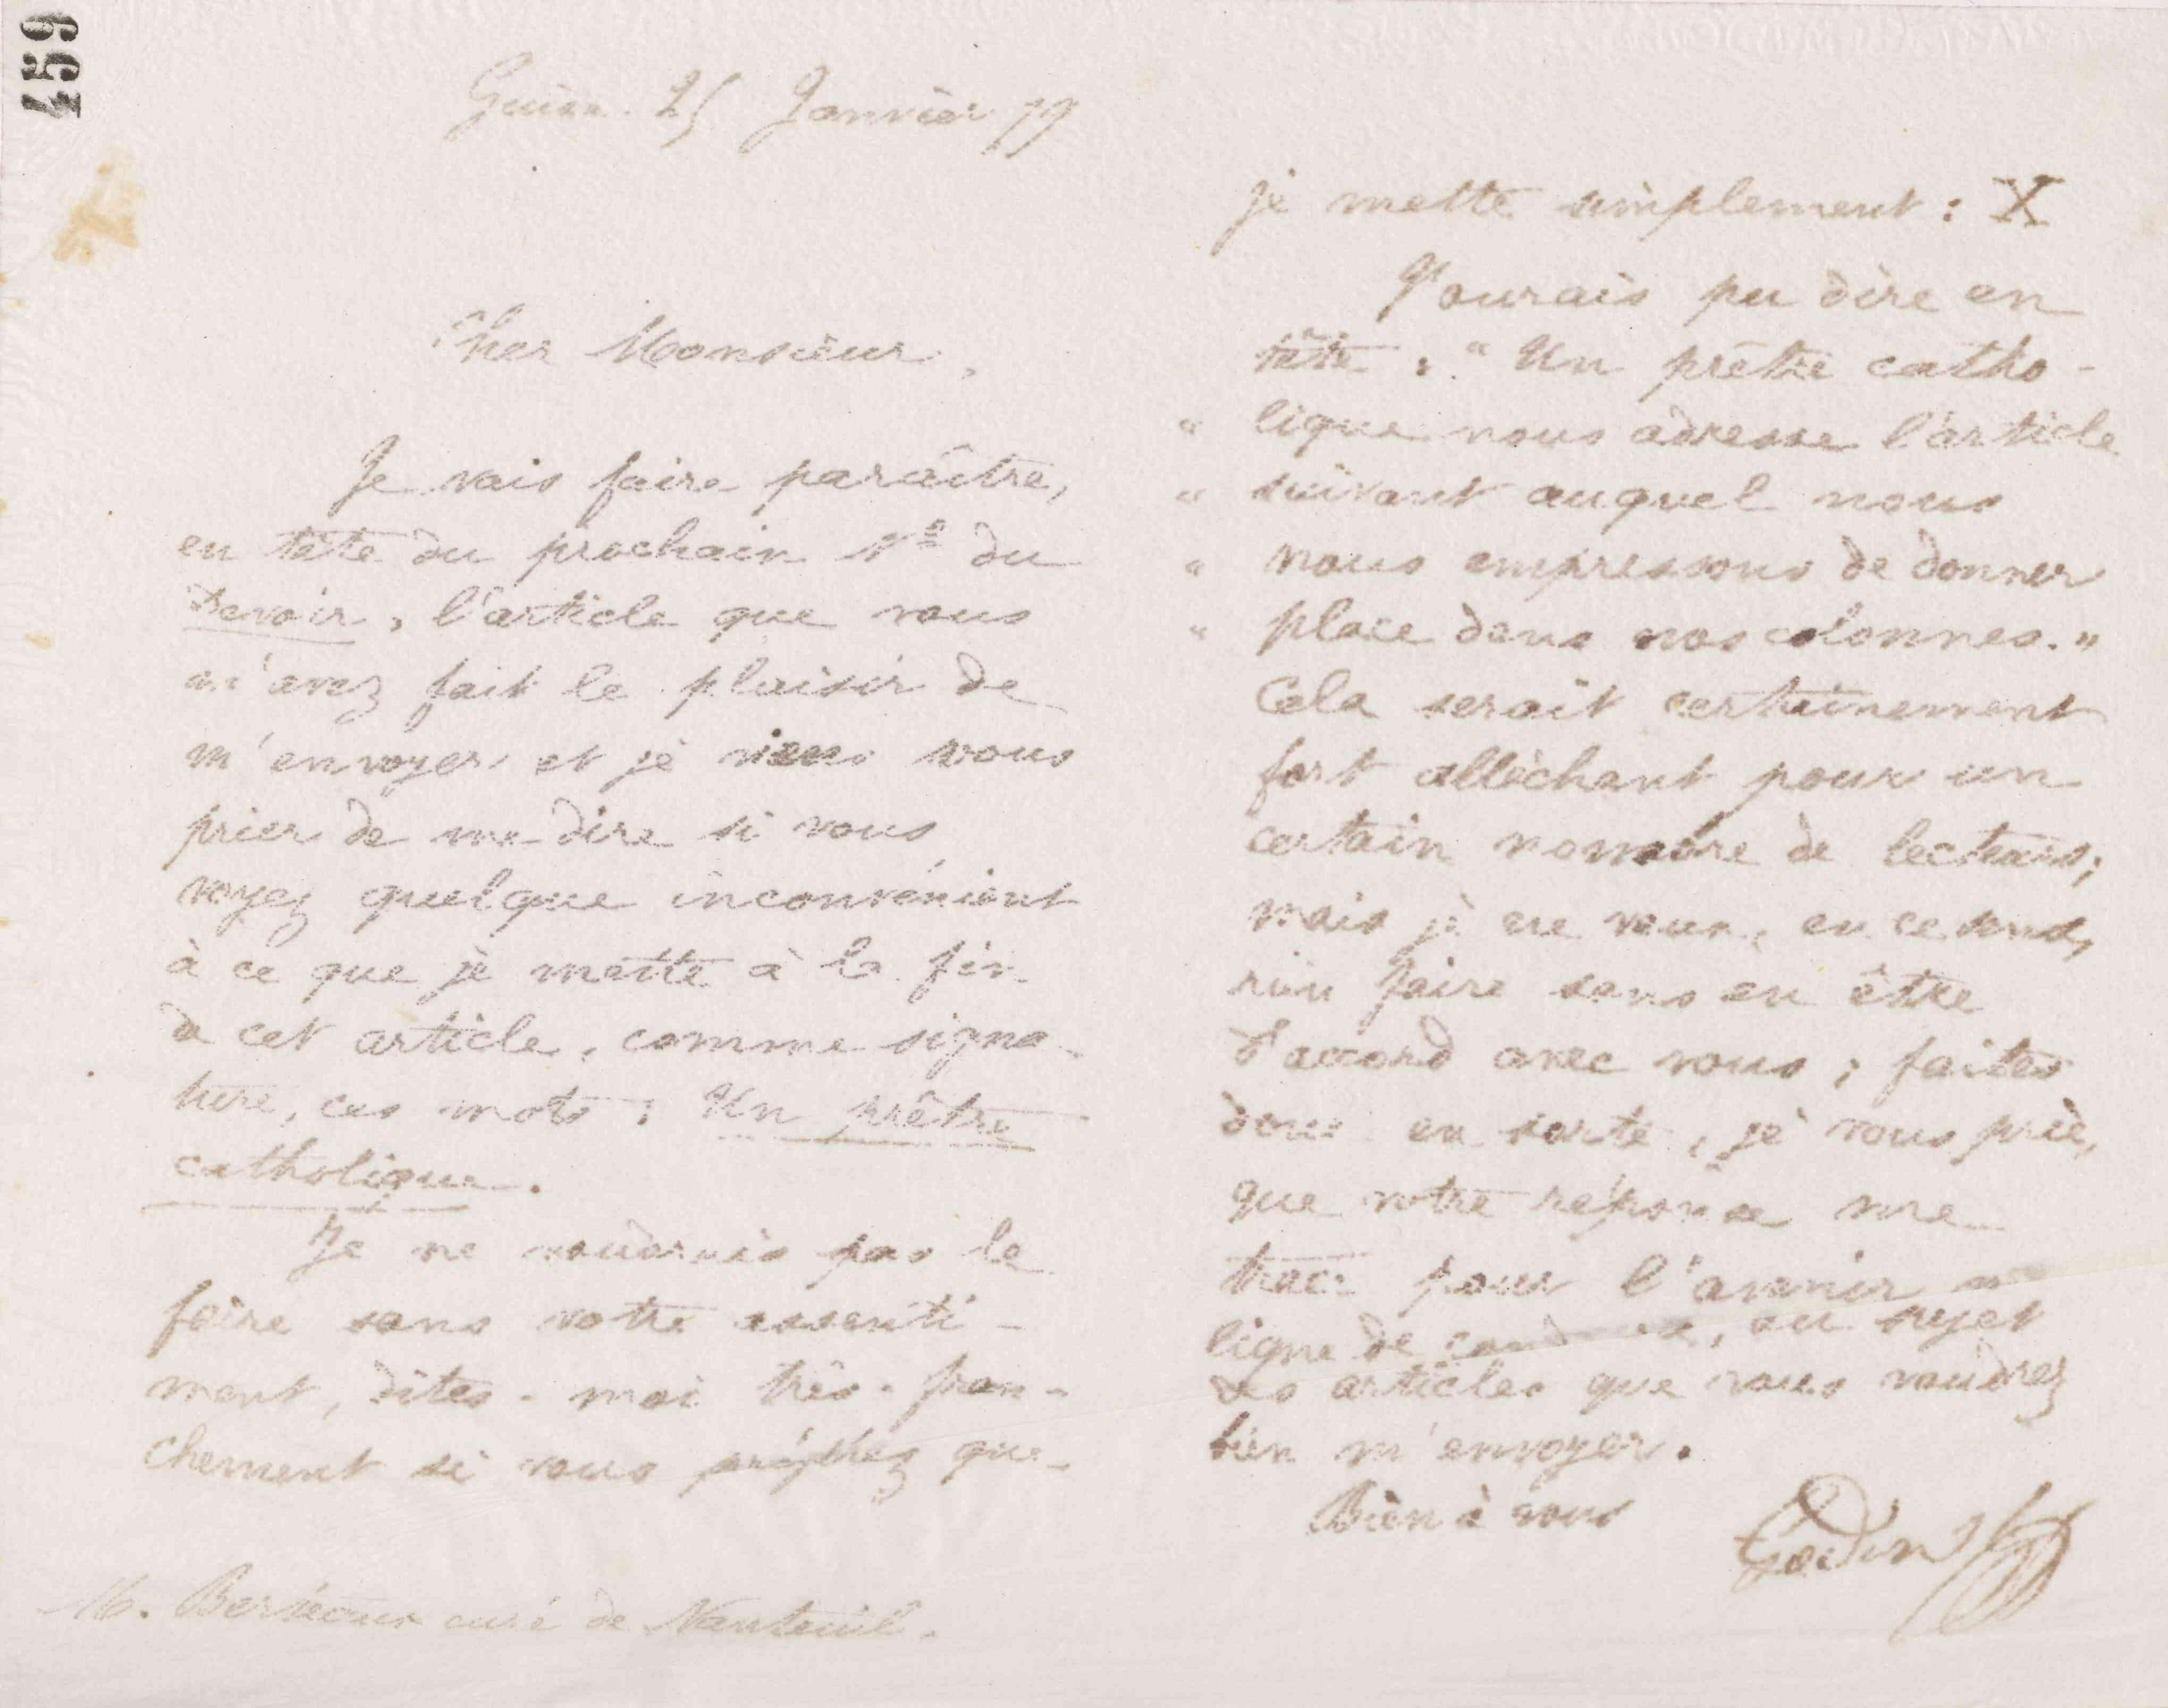 459
Guise. 25 Janvier 79
Cher Monsieur,
Je vais faire paraître,
en tête du prochain Nº du
Devoir, l'article que vous
m'avez fait le plaisir de
m'envoyer et je viens vous
prier de me dire si vous
voyez quelque inconvénient
à ce que je mette à la fin
de cet article, comme signa-
ture, ces mots : Un prêtre
catholique.
Je ne voudrais pas le
faire sans votre assenti-
ment, dites-moi très-fran-
chement si vous préférez que
M. Berteaux curé de Nanteuil.
je mette simplement : X
J'aurais pu dire en
tête : " Un prêtre catho-
" lique nous adresse l'article
" suivant auquel nous
" nous empressons de donner
" place dans nos colonnes. "
Cela serait certainement
fort alléchant pour un
certain nombre de lecteurs;
mais je ne veux, en ce sens,
rien faire sans en être
d'accord avec vous ; faites
donc en sorte, je vous prie,
que votre réponse me
trace pour l'avenir
ligne de conduite, au sujet
des articles que vous voudrez
bien m'envoyer.
Bien à vous
Godin